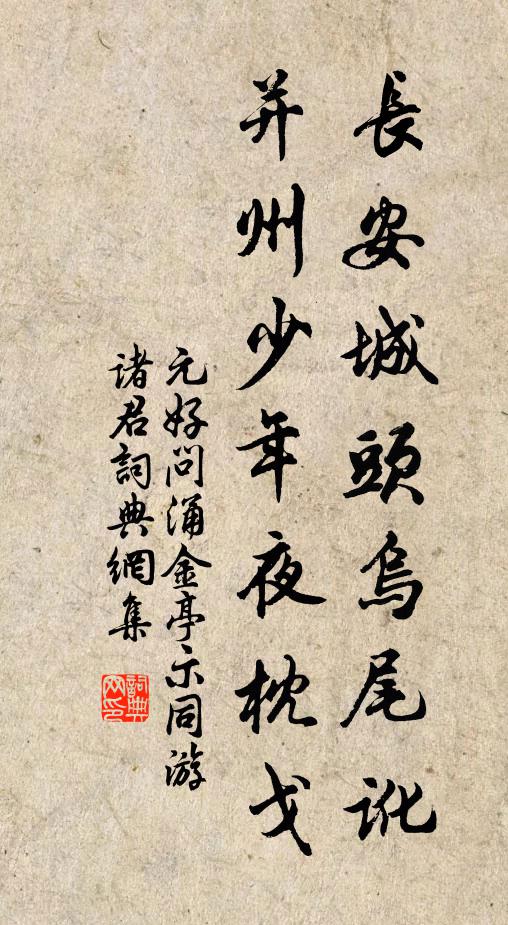 長安城頭烏尾訛
并州少年夜枕戈
元好問涌金亭示同游
諸君詞典網集
詞典
网印